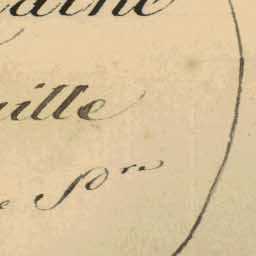 aine
uille
e Sdre